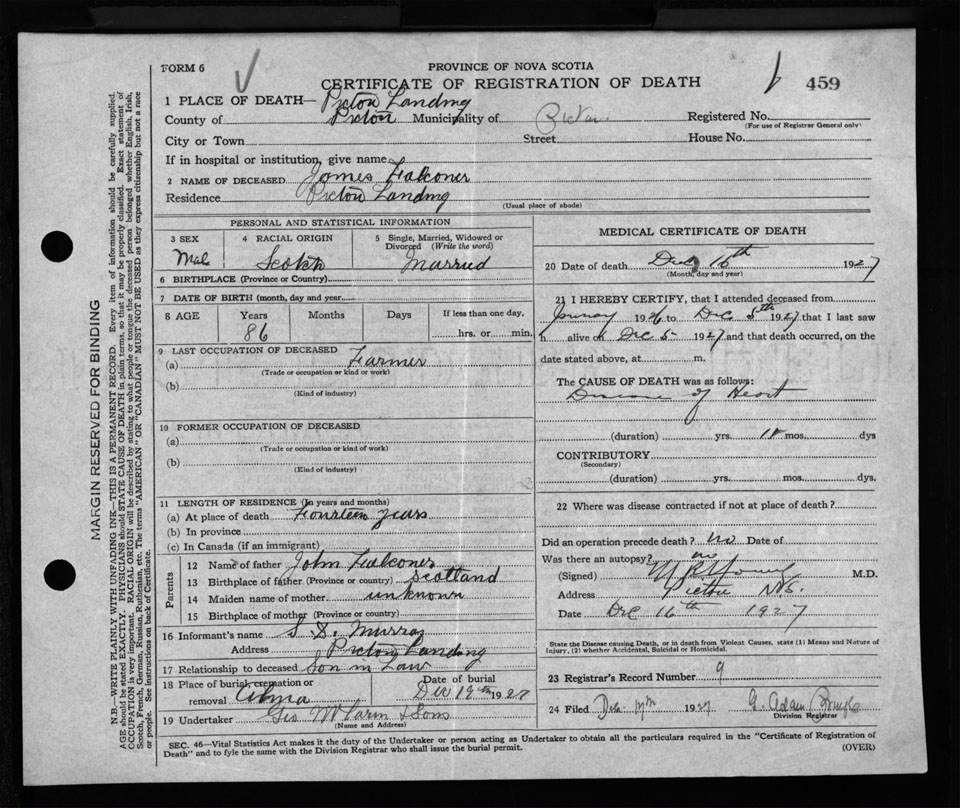 FORM 6
PROVINCE OF NOVA SCOTIA
CERTIFICATE OF REGISTRATION OF DEATH
459
1 PLACE OF DEATH— Pictou Landing
County of Pictou Municipality of Pictou Registered No.
(For use of Registrar General only)
City or Town Street House No.
If in hospital or institution, give name
2 NAME OF DECEASED James Falconer
Residence Pictou Landing
(Usual place of abode)
PERSONAL AND STATISTICAL INFORMATION
3 SEX
Mal
4 RACIAL ORIGIN
Scotch
5 Single, Married, Widowed or Divorced (Write the word)
Married
6 BIRTHPLACE (Province or Country)
7 DATE OF BIRTH (month, day and year)
8 AGE Years Months Days If less than one day,
86 hrs. or min.
9 LAST OCCUPATION OF DECEASED
(a) Farmer
(Trade or occupation or kind or work)
(b)
(Kind of industry)
10 FORMER OCCUPATION OF DECEASED
(a)
(Trade or occupation or kind of work)
(b)
(Kind of industry)
11 LENGTH OF RESIDENCE (In years and months)
(a) At place of death Fourteen years
(b) In province
(c) In Canada (if an immigrant)
Parents
12 Name of father John Falconer
13 Birthplace of father (Province or country) Scotland
14 Maiden name of mother unknown
15 Birthplace of mother (Province or country)
16 Informant's name S. D. Murray
Address Pictou Landing
17 Relationship to deceased Son in Law
18 Place of burial, cremation or removal
Date of burial
Dec 19th 1927
19 Undertaker Geo & Sons
(Name and Address)
MEDICAL CERTIFICATE OF DEATH
20 Date of death Dec 16th 1927
(Month, day and year)
21 I HEREBY CERTIFY, that I attended deceased from
1926 to Dec 5th 1927 that I last saw
h alive on Dec 5 1927 and that death occurred, on the
date stated above, at m.
The CAUSE OF DEATH was as follows:
Disease of Heart
(duration) yrs. mos. dys
CONTRIBUTORY
(Secondary)
(duration) yrs. mos. dys.
22 Where was disease contracted if not at place of death?
Did an operation precede death? no Date of
Was there an autopsy? no
(Signed) Young M.D.
Address Pictou N.S.
Date Dec 16th 1927
State the Disease causing Death, or in death from Violent Causes, state (1) Means and Nature of
Injury, (2) whether Accidental, Suicidal or Homicidal.
23 Registrar's Record Number 9
24 Filed 1927
Division Registrar
SEC. 46—Vital Statistics Act makes it the duty of the Undertaker or person acting as Undertaker to obtain all the particulars required in the "Certificate of Registration of
Death" and to fyle the same with the Division Registrar who shall issue the burial permit.
(OVER)
MARGIN RESERVED FOR BINDING
N.B.—WRITE PLAINLY WITH UNFADING INK—THIS IS A PERMANENT RECORD. Every item of information should be carefully supplied.
AGE should be stated EXACTLY. PHYSICIANS should STATE CAUSE OF DEATH in plain terms, so that it may be properly classified. Exact statement of
OCCUPATION is very important. RACIAL ORIGIN will be described by stating to what people or tongue the deceased person belonged whether English, Irish,
Scotch, French, German, Russian, Ruthenian, etc. The terms "AMERICAN" OR "CANADIAN" MUST NOT BE USED as they express citizenship but not a race
or people. See instructions on back of Certificate.